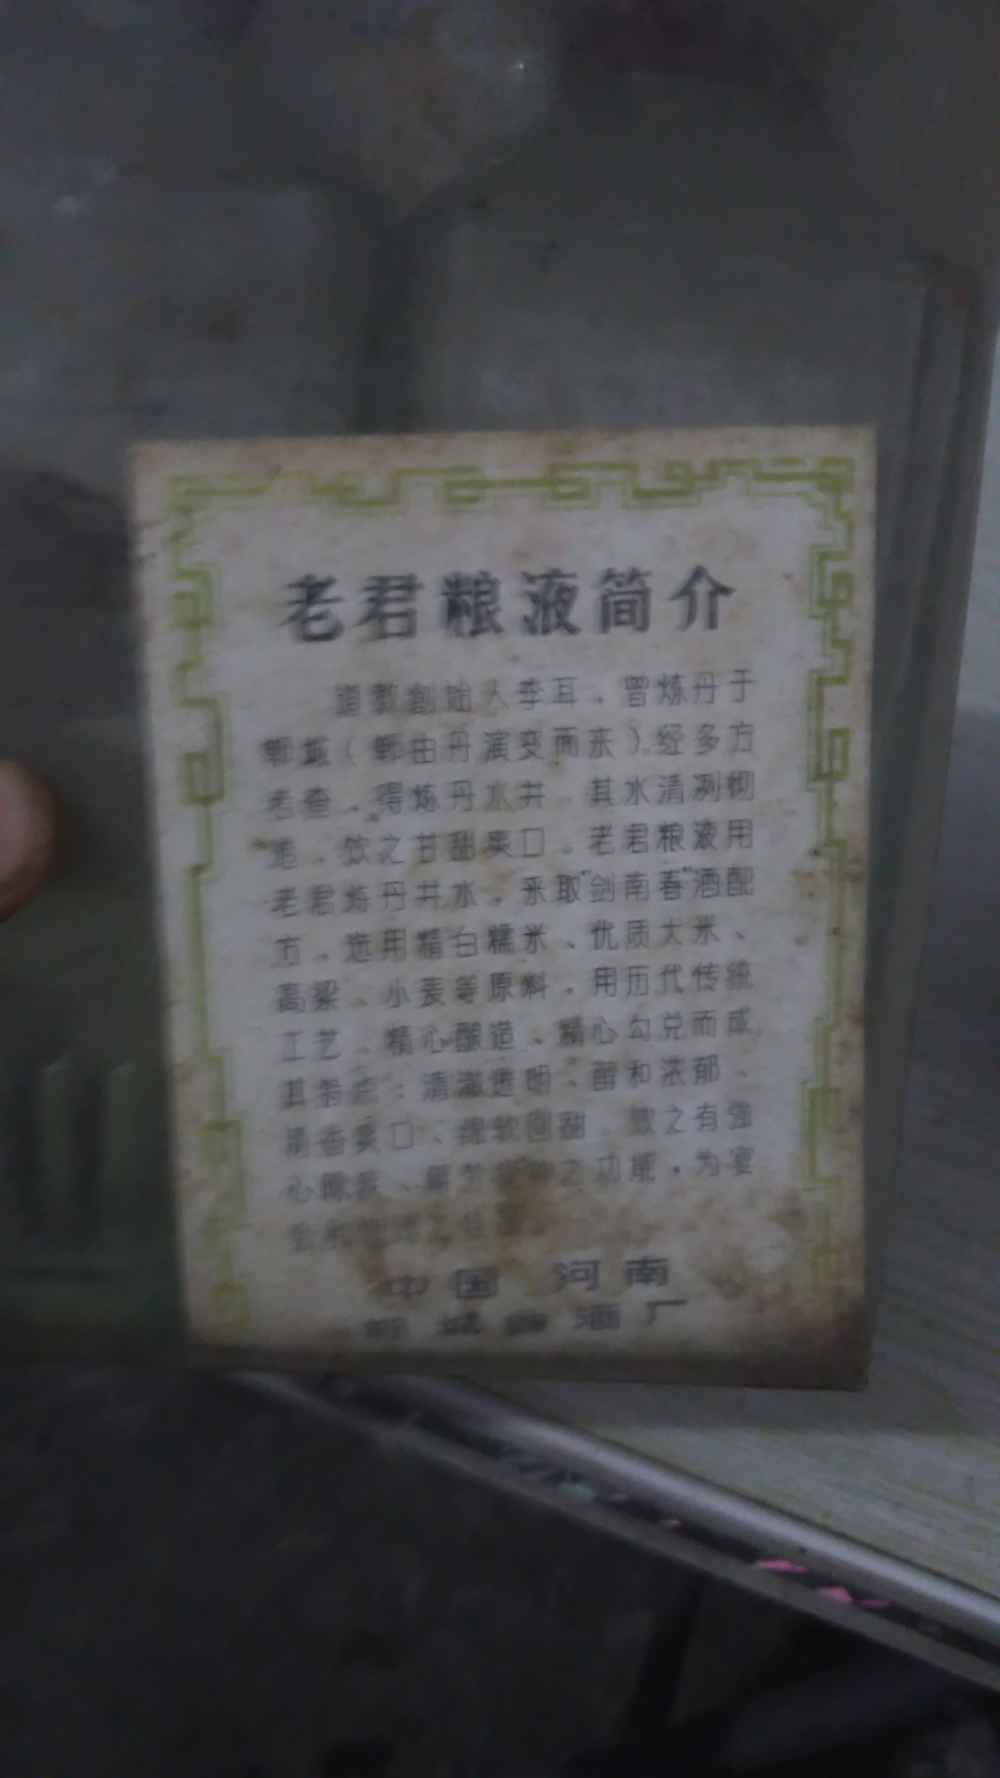 老君粮液简介
道教創始人李耳，曾炼丹于
郸城（郸由丹演变而来），经多方
考查，得炼丹水井，其水清冽
，饮之甘甜爽口。老君粮液用
老君炼丹井水，采取"剑南春"酒配
方，选用精白糯米、优质大米、
高粱、小麦等原料，用历代传统
工艺，精心酿造、精心勾兑而成
其特点：清澈透明、醇和浓郁、
清香爽口、绵软回甜，饮之有强
心 、解 之功能，为宴
中国 河南
郸城 酒厂